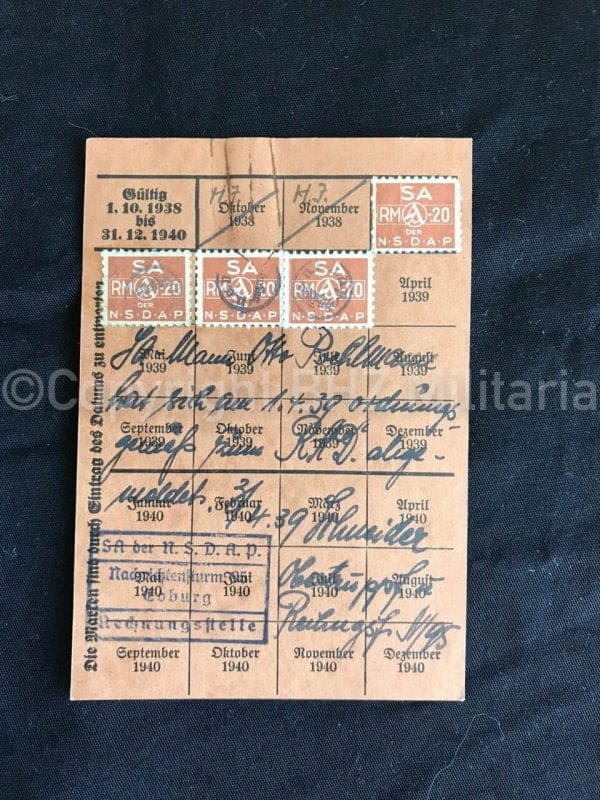 Gültig
1. 10. 1938
bis
31. 12. 1940
H.J.
Oktober
1938
H.J.
November
1938
SA
RM -.20
DER
N·S·D·A·P
SA
RM -.20
DER
N·S·D·A·P
SA
RM -.20
DER
N·S·D·A·P
SA
RM -.20
DER
N·S·D·A·P
April
1939
Die Marken sind durch Eintrag des Datums zu entwerten
Mai
1939
Juni
1939
Juli
1939
August
1939
SA Mann Otto
hat sich am 1.4.39 ordnungs
September
1939
Oktober
1939
November
1939
Dezember
1939
gemäß zum RAD. abge-
Januar
1940
Februar
1940
März
1940
April
1940
meldet. 3/4.39 Schneider
Mai
1940
Juni
1940
Juli
1940
August
1940
SA der N.S.D.A.P.
Nachrichtensturm
Coburg
Rechnungsstelle
September
1940
Oktober
1940
November
1940
Dezember
1940
©Copyright BHZ Militaria